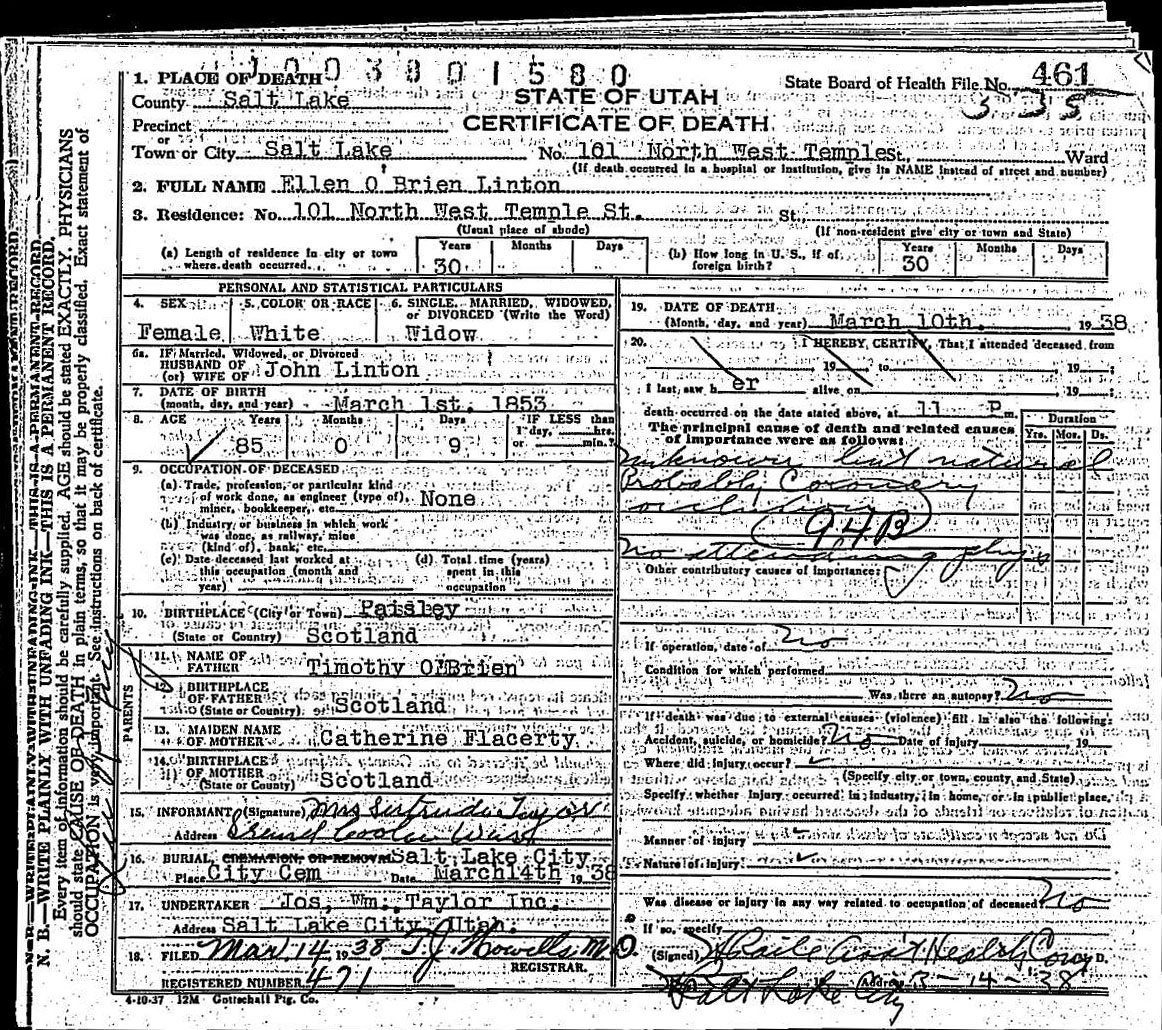 1003801580
State Board of Health File No. 461
535
STATE OF UTAH
CERTIFICATE OF DEATH
1. PLACE OF DEATH
County Salt Lake
Precinct
or
Town or City Salt Lake No. 101 North West Temple St., Ward
(If death occurred in a hospital or institution, give its NAME instead of street and number)
2. FULL NAME Ellen O'Brien Linton
3. Residence: No. 101 North West Temple St. St.
(Usual place of abode) (If non-resident give city or town and State)
(a) Length of residence in city or town where death occurred. Years 30 Months Days
(b) How long in U. S., if of foreign birth? Years 30 Months Days
PERSONAL AND STATISTICAL PARTICULARS
4. SEX Female
5. COLOR OR RACE White
6. SINGLE, MARRIED, WIDOWED, or DIVORCED (Write the Word) Widow
6a. IF Married, Widowed, or Divorced
HUSBAND OF
(or) WIFE OF John Linton
7. DATE OF BIRTH
(month, day, and year) March 1st. 1853
8. AGE Years 85 Months 0 Days 9 IF LESS than 1 day, hrs. or min.?
9. OCCUPATION OF DECEASED
(a) Trade, profession, or particular kind
of work done, as engineer (type of), None
miner, bookkeeper, etc.
(b) Industry or business in which work
was done, as railway, mine
(kind of), bank, etc.
(c) Date deceased last worked at this occupation (month and year)
(d) Total time (years) spent in this occupation
10. BIRTHPLACE (City or Town) Paisley
(State or Country) Scotland
PARENTS
11. NAME OF FATHER Timothy O'Brien
12. BIRTHPLACE OF FATHER
(State or Country) Scotland
13. MAIDEN NAME OF MOTHER Catherine Flacerty
14. BIRTHPLACE OF MOTHER
(State or Country) Scotland
15. INFORMANT (Signature) Mrs Gertrude Taylor
Address
16. BURIAL, CREMATION, OR REMOVAL Salt Lake City
Place City Cem Date March 14th 1938
17. UNDERTAKER Jos. Wm. Taylor Inc.
Address Salt Lake City, Utah.
18. FILED Mar. 14 1938 T. J. Howells M.D.
REGISTRAR.
REGISTERED NUMBER 471
4-10-37 12M Gottschall Ptg. Co.
19. DATE OF DEATH
(Month, day, and year) March 10th. 1938
20. I HEREBY CERTIFY, That I attended deceased from
, 19 to , 19 ;
I last saw her alive on , 19 ;
death occurred on the date stated above, at 11 P m.
The principal cause of death and related causes
of importance were as follows:
Duration
Yrs. Mos. Ds.
Unknown but natural
Probably Coronary
occlusion
94B
No attending phys
Other contributory causes of importance:
If operation, date of No
Condition for which performed
Was there an autopsy? No
If death was due to external causes (violence) fill in also the following:
Accident, suicide, or homicide? No Date of injury , 19
Where did injury occur?
(Specify city or town, county, and State)
Specify whether injury occurred in industry, in home, or in public place,
Manner of injury
Nature of injury
Was disease or injury in any way related to occupation of deceased? No
If so, specify
(Signed) Ass't Health M. D.
Salt Lake City Address 3-14-38
N. B.—WRITE PLAINLY WITH UNFADING INK—THIS IS A PERMANENT RECORD.
Every item of information should be carefully supplied. AGE should be stated EXACTLY. PHYSICIANS
should state CAUSE OF DEATH in plain terms, so that it may be properly classified. Exact statement of
OCCUPATION is very important. See instructions on back of certificate.